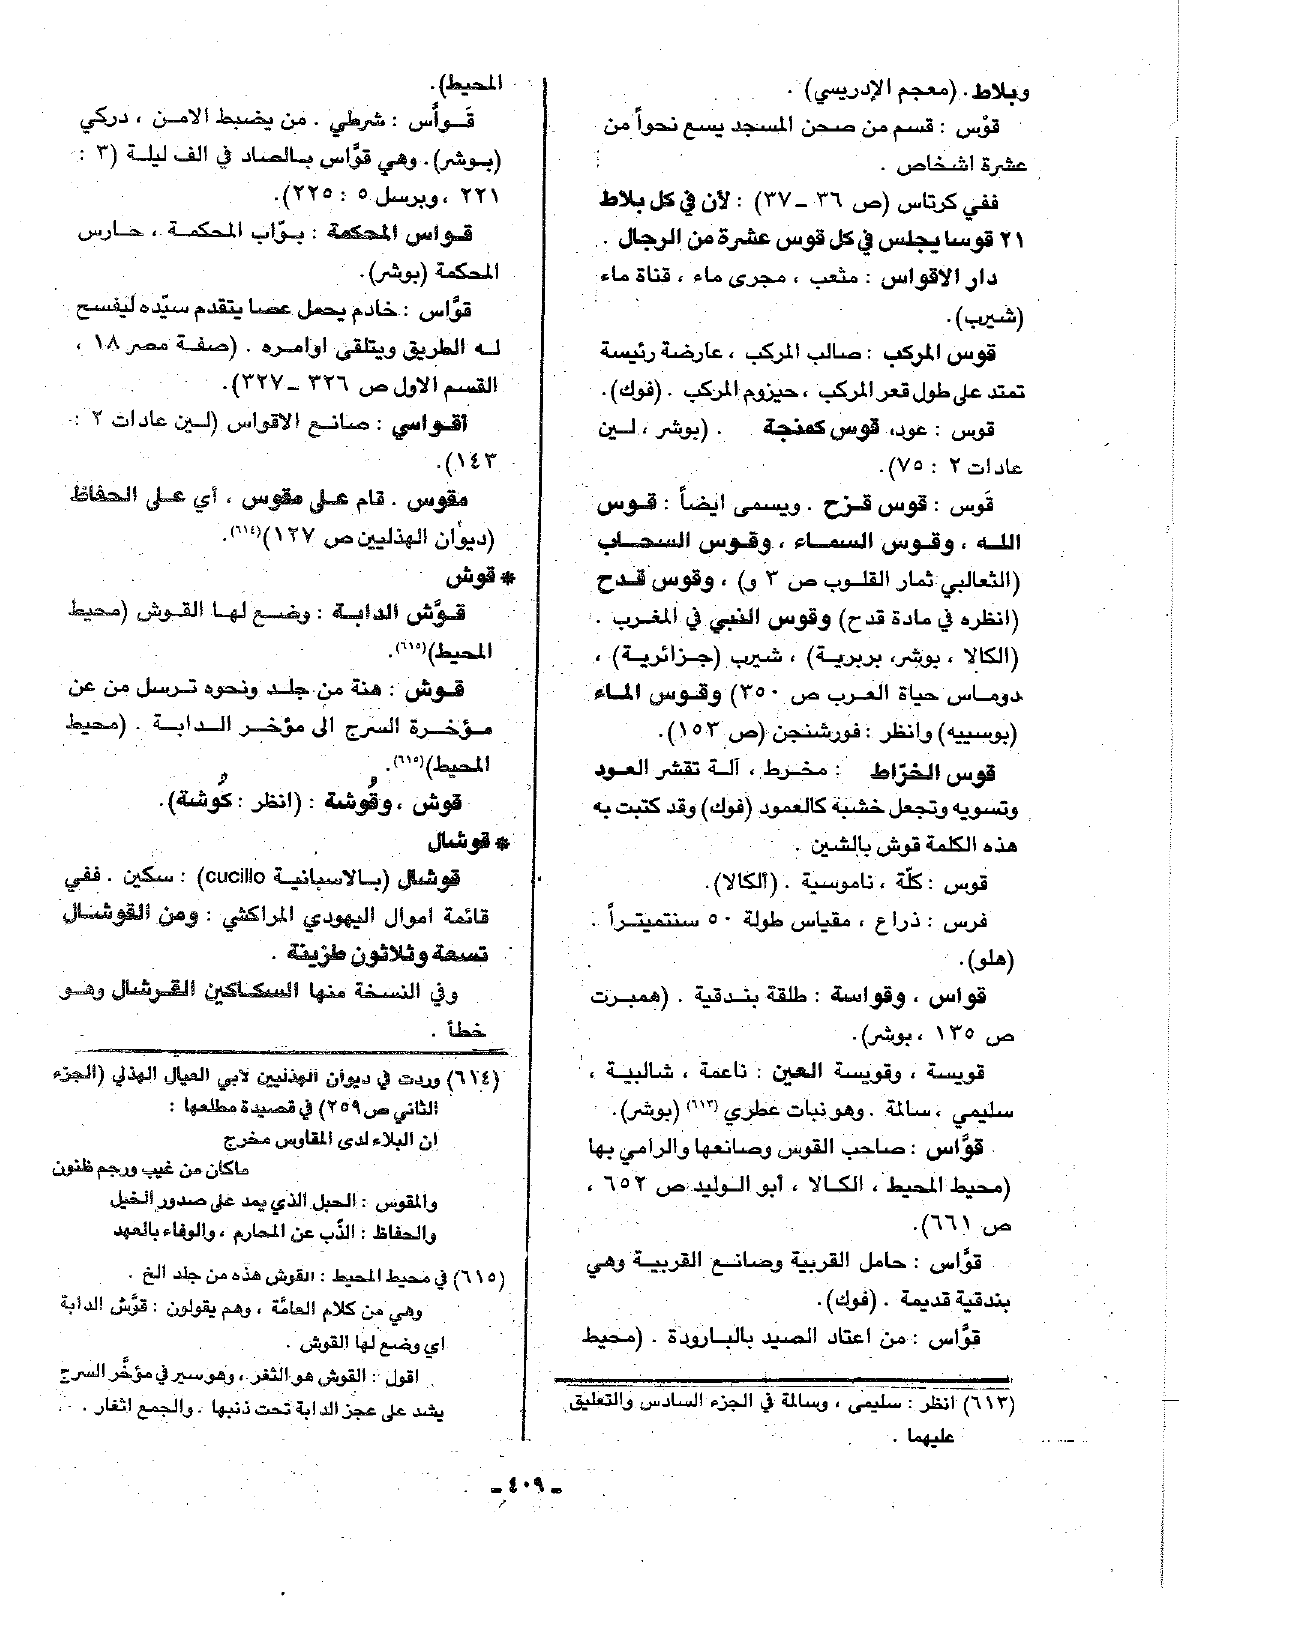 وبلاط. (معجم الإدريسي) .
قوْس : قسم من صحن المسجد يسع نحواً من
عشرة اشخاص .
ففي كرتاس (ص ٣٦ -٣٧) : لأن في كل بلاط
٢١ قوسا يجلس في كل قوس عشرة من الرجال .
دار الاقواس : مثعب ، مجرى ماء ، قناة ماء
(شيرب).
قوس المركب : صالب المركب ، عارضة رئيسة
تمتد على طول قعر المركب ، حيزوم المركب . (فوك).
قوس : عود، قوس كمنجة . (بوشر ، لين
عادات ٢ : ٧٥).
قَوس : قوس قزح . ويسمى ايضاً : قوس
الله ، وقوس السماء ، وقوس السحاب
(الثعالبي ثمار القلوب ص ٣ و) ، وقوس قدح
(انظره في مادة قدح) وقوس النبي في المغرب .
(الكالا ، بوشر، بربرية) ، شيرب (جزائرية) ،
دوماس حياة العرب ص ٣٥٠) وقوس الماء
(بوسييه) وانظر : فورشنجن (ص ١٥٣).
قوس الخرّاط : مخرط ، آلة تقشر العود
وتسويه وتجعل خشبة كالعمود (فوك) وقد كتبت به
هذه الكلمة قوش بالشين .
قوس : كلّة ، ناموسية . (ألكالا).
فرس : ذراع ، مقياس طولة ٥٠ سنتميتراً .
(هلو).
قواس ، وقواسة : طلقة بندقية . (همبرت
ص ١٣٥ ، بوشر).
قويسة ، وقويسة العين : ناعمة ، شالبية ،
سليمي ، سالمة . وهو نبات عطري (٦١٣) (بوشر).
قوَّاس : صاحب القوس وصانعها والرامي بها
(محيط المحيط ، الكالا ، أبو الوليد ص ٦٥٢ ،
ص ٦٦١).
قوَّاس : حامل القربية وصانع القربية وهي
بندقية قديمة . (فوك).
قوَّاس : من اعتاد الصيد بالبارودة . (محيط
(٦١٣) انظر : سليمى ، وسالمة في الجزء السادس والتعليق
عليهما .
المحيط).
قَوأَّس : شرطي . من يضبط الامن ، دركي
(بوشر). وهي قوَّاس بالصاد في الف ليلة (٣ :
٢٢١ ، وبرسل ٥ : ٢٢٥).
قواس المحكمة : بوّاب المحكمة ، حارس
المحكمة (بوشر).
قوَّاس : خادم يحمل عصا يتقدم سيّده ليفسح
له الطريق ويتلقى اوامره . (صفة مصر ١٨ ،
القسم الاول ص ٣٢٦ -٣٢٧).
أقواسي : صانع الاقواس (لين عادات ٢ :
١٤٣).
مقوس . قام على مقوس ، أي على الحفاظ
(ديوان الهذليين ص ١٢٧)(٦١٤).
* قوش
قوَّش الدابة : وضع لها القوش (محيط
المحيط)(٦١٥).
قوش : هنة من جلد ونحوه ترسل من عن
مؤخرة السرج الى مؤخر الدابة . (محيط
المحيط)(٦١٥).
قُوش ، وقُوشة : (انظر : كوشة).
* قوشال
قوشال (بالاسبانية cucillo) : سكين . ففي
قائمة اموال اليهودي المراكشي : ومن القوشال
تسعة وثلاثون طزينة .
وفي النسخة منها السكاكين القرشال وهو
خطأ .
(٦١٤) وردت في ديوان الهذليين لابي العيال الهذلي (الجزء
الثاني ص ٢٥٩) في قصيدة مطلعها :
ان البلاء لدى المقاوس مخرج
ماكان من غيب ورجم ظنون
والمقوس : الحبل الذي يمد على صدور الخيل
والحفاظ : الذَّب عن المحارم ، والوفاء بالعهد
(٦١٥) في محيط المحيط : القوش هذه من جلد الخ .
وهي من كلام العامّة ، وهم يقولون : قوَّش الدابة
اي وضع لها القوش .
اقول : القوش هو الثفر ، وهو سير في مؤخَّر السرج
يشد على عجز الدابة تحت ذنبها . والجمع اثفار .
- ٤٠٩ -